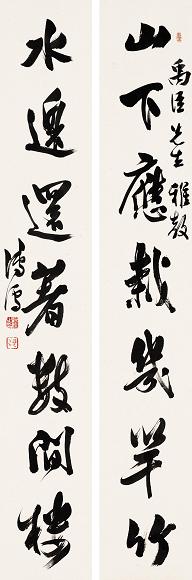 山下應栽幾竿竹
禹臣先生雅教
水邊還著數間樓
溥儒